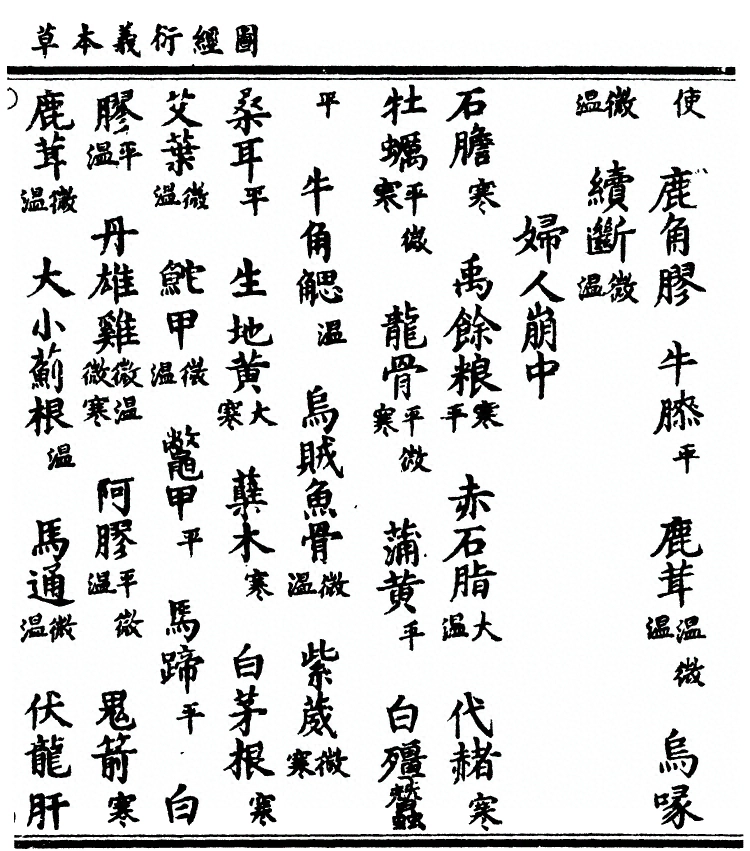 圖經衍義本草
使 鹿角膠 牛膝平 鹿茸溫微溫 烏喙
微溫 續斷微溫
婦人崩中
石膽寒 禹餘粮寒平 赤石脂大溫 代赭寒
牡蠣平微寒 龍骨平微寒 蒲黃平 白殭蠶
平 牛角䚡溫 烏賊魚骨微溫 紫葳微寒
桑耳平 生地黃大寒 蘗木寒 白茅根寒
艾葉微溫 鮀甲微溫 鼈甲平 馬蹄平 白
膠平溫 丹雄雞微溫微寒 阿膠平微溫 鬼箭寒
鹿茸微溫 大小薊根溫 馬通微溫 伏龍肝